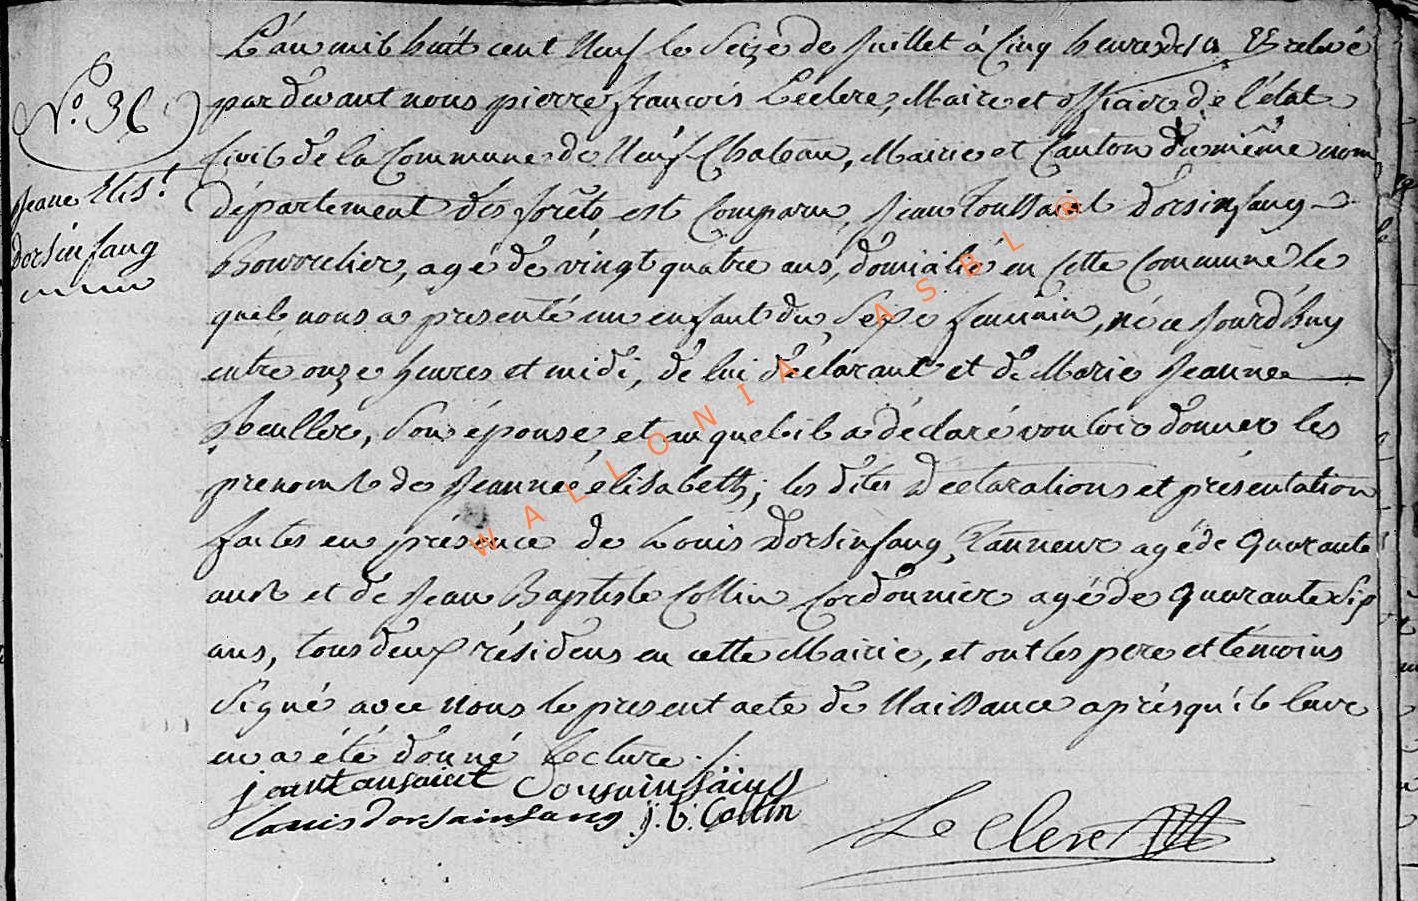 L'an mil huit cent Neuf le Seize de Juillet à Cinq heures de Relevé
N.º 36
pardevant nous pierre françois Leclerc, Maire et officier de l'état
Civil de la Commune de Neuf Chateau, Mairie et Canton du même nom
Jeane Elis.t
département des forêts est Comparu, Jean Toussaint Dorsinfang
Dorsinfang
Bourrelier, agé de vingt quatre ans, domicilié en Cette Commune le
quel nous a présenté un enfant du Sexe feminin, né ce Jourd'huy
entre onze heures et midi, de lui déclarant et de Marie Jeanne
son épouse, et auquel il a déclaré vouloir donner les
prenoms de Jeanne élisabeth; les dites Déclarations et présentation
faites en présence de Louis Dorsinfang, Tanneur agé de Quarante
ans et de Jean Baptiste Collin Cordonnier agé de Quarante Six
ans, tous deux résidens en cette Mairie, et ont les pere et témoins
Signé avec Nous le present acte de Naissance après qu'il leur
en a été donné lecture ./.
jean tousaint Dorsainfaing
Louis dorsainfang j. b. Collin
Le Clerc
WALLONIA ASBL ®